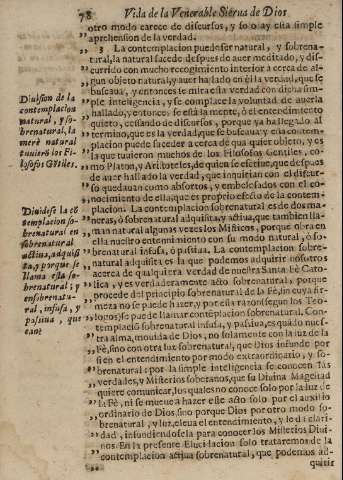 78 Vida de la Venerable Sierua de Dios
otro modo carece de discursos, y solo ay esta simple
aprehension de la verdad.
3 La contemplacion puede ser natural, y sobrena-
tural, la natural sucede despues de auer meditado, y dis-
currido con mucho recogimiento interior à cerca de al-
gun objeto natural, y auer hallado en èl la verdad, que se
buscaua, y entonces se mira esta verdad con dicha sim-
ple inteligencia, y se complace la voluntad de auerla
hallado, y entonces se està la mente, ò el entendimiento
quieto, cessando de discursos, porque ya ha llegado al
termino, que es la verdad, que se buscaua, y esta contem-
placion puede suceder a cerca de qualquier objeto, y es
la que tuuieron muchos de los Filosofos Gentiles, co-
mo Platon, y Aristoteles, de quien se escriue, que despues
de auer hallado la verdad, que inquirian con el discur-
so quedauan como absortos, y embelesados con el co-
nocimiento de ella, que es proprio efecto de la contem-
placion. La contemplacion sobrenatural es de dos ma-
neras, ò sobrenatural adquisita, y actiua, que tambien lla-
man natural algunas vezes los Misticos, porque obra en
ella nuestro entendimiento con su modo natural, ò so-
brenatural infusa, ò passiua. La contemplacion sobre-
natural adquisita es la que podemos adquirir nosotros
acerca de qualquiera verdad de nuestra Santa Fè Cato-
lica, y es verdaderamente sobrenatural, porque
procede del principio sobrenatural de la Fè, sin cuya fir-
meza no se puede hazer, y por esta razon (segun los Teo-
logos) se puede llamar contemplacion sobrenatural. Con-
templaciò sobrenatural infusa, y passiua, es quãdo nues-
tra alma, mouida de Dios, no solamente con la luz de la
Fè, sino con otra luz sobrenatural, que Dios infunde por
sì en el entendimiento por modo extraordinario, y so-
brenatural: por la simple inteligencia se conocen las
verdades, y Misterios soberanos, que su Diuina Magestad
quiere comunicar, los quales no conoce solo por la luz de
la Fè, ni se mueue a hazer este acto solo por el auxilio
ordinario de Dios, sino porque Dios por otro modo so-
brenatural, y luz, eleua el entendimiento, y le dà clari-
dad, infundiendosela para conocer los Misterios Diui-
nos. En la presente Elucidacion solo trataremos de la
contemplacion actiua sobrenatural, que podemos ad-
quirir
Diuision de la
contemplacion
natural, y so-
brenatural, la
merè natural
tuuierõ los Fi-
losofos Gẽtiles.
Diuidese la cõ
templacion so-
brenatural en
sobrenatural
actiua, adquisi-
ta, y porque se
llama esta so-
brenatural; y
en sobrenatu-
ral, infusa, y
passiua, que
sean?